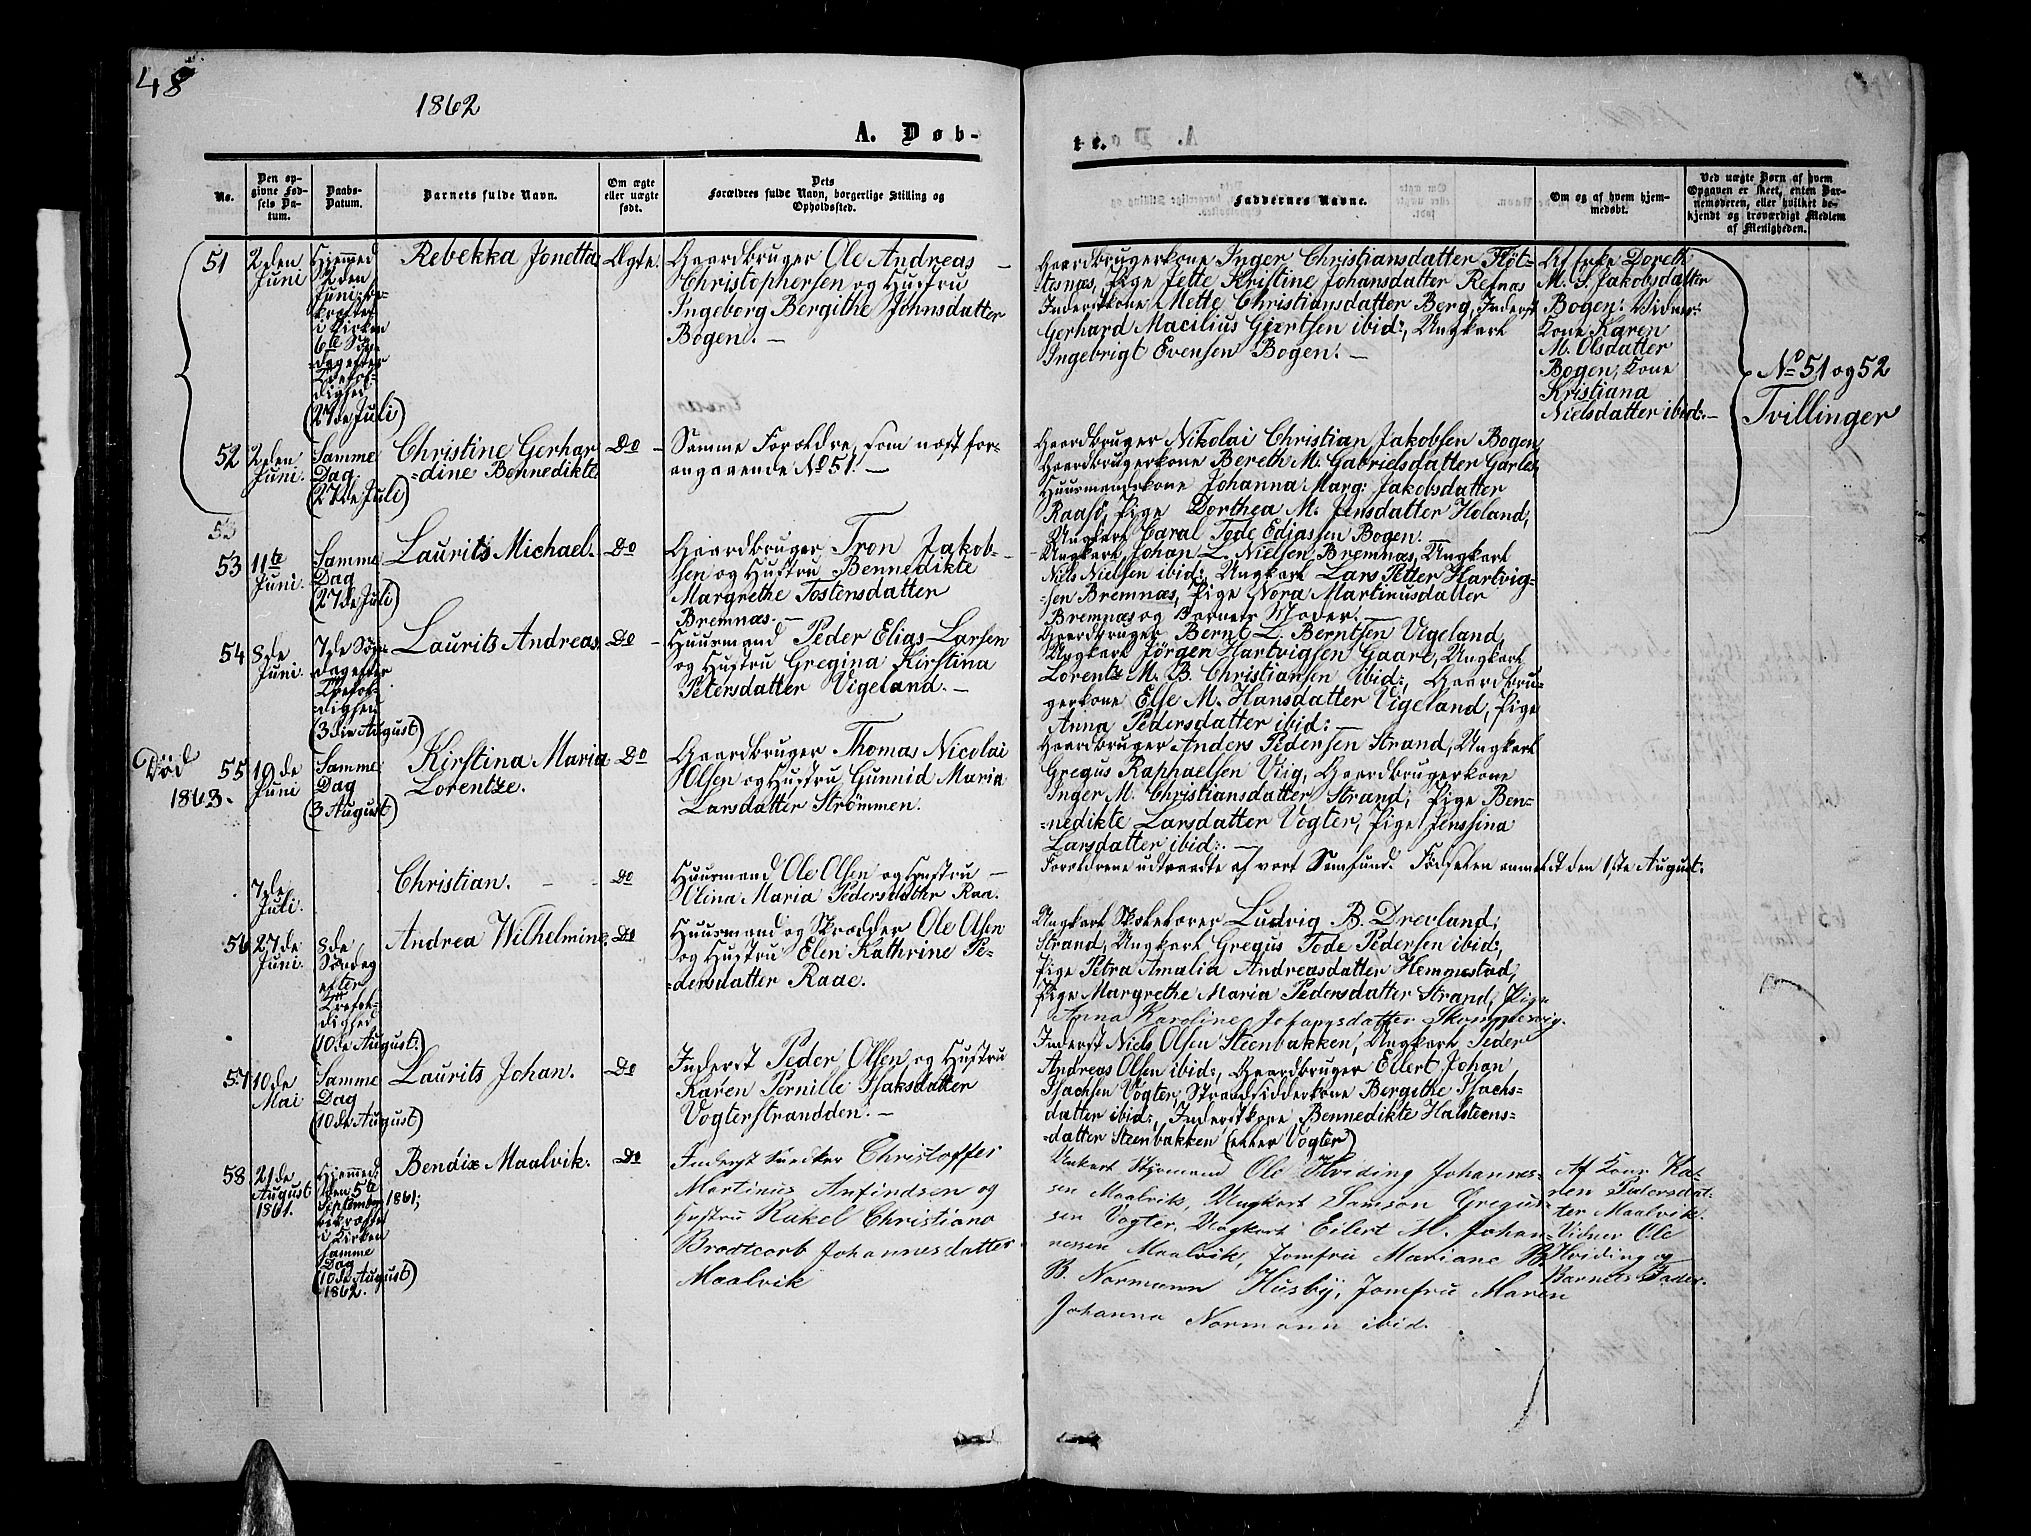 48
1862
A. Døb-
te.
No.
Den op-
givne Fød-
sels Da-
tum.
Daabs-
Datum.
Barnets fulde Navn.
Om ægte
eller uægte
født.
Dets
Forældres fulde Navn, borgerlige Stilling og
Opholdssted.
Faddernes Navne.
Om og af hvem hjem-
medøbt.
Ved uægte Børn af hvem
Opgaven er skeet, enten Bar-
nemoderen, eller hvilket be-
kjendt og troværdigt Medlem
af Menigheden.
51
2den
Juni
Hjemmed
Juni
i Kirken
6te Søn-
dag efter
Trefol-
dighed
(27de Juli)
Rebekka Jonetta
Ægte.
Gaardbruger Ole Andreas
Christophersen og Hustru
Ingeborg Bergithe Johnsdatter
Bogen. —
Gaardbrugerkone Inger Christiansdatter Fløt-
tesnæs, Pige Jette Kristine Johansdatter Refnæs
Inderstkone Mette Christiansdatter Berg, Inderst
Gerhard Macilius Gjertsen ibid:, Ungkarl
Ingebrigt Evensen Bogen. —
Af Enke Doreth
M. S. Jakobsdatter
Bogen: Vidner:
Kone Karen
M. Olsdatter
Bogen, Kone
Kristiana
Nielsdatter ibid: —
No 51 og 52
Tvillinger
52
2den
Juni.
Samme
Dag
(27de Juli)
Christine Gerhar
=dine Bennedikte
Do —
Samme Forældre, som næst for-
angaaende No 51. —
Gaardbruger Nikolai Christian Jakobsen Bogen
Gaardbrugerkone Bereth M. Gabrielsdatter Garles,
Huusmandskone Johanna Marg: Jakobsdatter
Raasø, Pige Dorthea M. Jensdatter Holand,
Ungkarl Caral Tode Ediassen Bogen.
53
53
11te
Juni.
Samme
Dag
(27de Juli)
Laurits Michael.
Do
Gaardbruger Tron Jakob-
sen og Hustru Bennedikte
Margrethe Tostensdatter
Bremnæs. —
Ungkarl Johan L. Nielsen Bremnæs, Ungkarl
Niels Nielsen ibid:, Ungkarl Lars Petter Hartvig-
=sen Bremnæs, Pige Nora Martinusdatter
Bremnæs og Barnets Moder.
54
8de
Juni.
7de Søn-
dag efter
Trefol-
dighed
(3die August)
Laurits Andreas.
Do —
Huusmand Peder Elias Larsen
og Hustru Gregina Kirstina
Petersdatter Vigeland. —
Gaardbruger Bernt L. Berntsen Vigeland,
Ungkarl Jørgen Hartvigsen Gaare, Ungkarl
Lorentz M. B. Christiansen ibid:, Gaardbru-
gerkone Else M. Hansdatter Vigeland, Pige
Anna Pedersdatter ibid: —
Død
1863.
55
19de
Juni
Samme
Dag
(3 August)
Kirstina Maria
Lorentze.
Do
Gaardbruger Thomas Nicolai
Olsen og Hustru Gunnid Maria
Larsdatter Strømmen.
Gaardbruger Anders Pedersen Strand, Ungkarl
Gregus Raphaelsen Viig, Gaardbrugerkone
Inger M. Christiansdatter Strand, Pige Ben-
=nedikte Larsdatter Vogter, Pige Jenssina
Larsdatter ibid: —
7de
Juli.
Christian.
Do
Huusmand Ole Olsen og Hustru —
Ulina Maria Pedersdatter Raa.
Forældrene udtraadte af vort Samfund. Fødselen anmeldt den 1ste August.
56
27de
Juni.
8de
Søndag
efter
Trefol-
dighed
(10de August.)
Andrea Wilhelmine.
Do
Huusmand og Skrædder Ole Olsen
og Hustru Elen Kathrine Pe-
=dersdatter Raae.
Ungkarl Skolelærer Ludvig B. Drevland,
Strand, Ungkarl Gregus Tode Pedersen ibid:,
Pige Petra Amalia Andreasdatter Hemmestad,
Pige Margrethe Maria Pedersdatter Strand, Pige
Anna Karoline Johannsdatter
57
10de
Mai
Samme
Dag
(10de August)
Laurits Johan.
Do
Inderst Peder Olsen og Hustru
Karen Pernille Isaksdatter
Vogterstrandden. —
Inderst Niels Olsen Steenbakken, Ungkarl Peder
Andreas Olsen ibid:, Gaardbruger Eilert Johan
Isachsen Vogter, Strandsidderkone Bergithe Isachs-
datter ibid:, Inderstkone Bennedikte Halsteens-
=datter Steenbakken (eller Vogter)
58
21de
August
1861.
Hjemmed
den 5te
September 1861;
i Kirken
samme
Dag
(10de August)
1862.
Bendix Maalvik.
Do
Inderst Snedker Christoffer
Martinus Anfindsen og
Hustru Rakel Christiana
Brodtcorb Johannesdatter
Maalvik
Unkarl Styrmand Ole Hviding Johannes-
sen Maalvik, Ungkarl Samson Gregus-
sen Vogter, Ungkarl Eilert M. Johan-
nessen Maalvik, Jomfru Mariane
B. Normann Husby, Jomfru Maren
Johanna Normann ibid.
Af Kone Ka-
ren Petersdat-
ter Maalvik.
Vidner Ole
Hviding og
Barnets Fader.